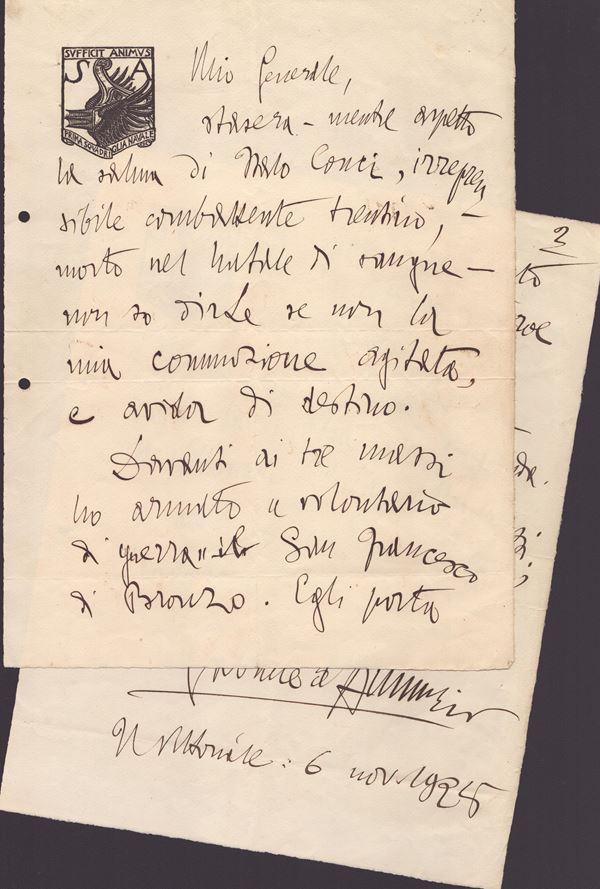 SVFFICIT ANIMVS
S A
PRIMA SQVADRIGLIA NAVALE
Mio Generale,
stasera - mentre aspetto
la salma di Italo Conci, irrepren-
sibile combattente trentino,
morto nel Natale di sangue -
non so dirLe se non la
mia commozione agitata,
e avida di destino.
Davanti ai tre massi
ho armato "volontario
di guerra" il San Francesco
di Bronzo. Egli porta
2
Gabriele d'Annunzio
Il Vittoriale: 6 nov. 1925